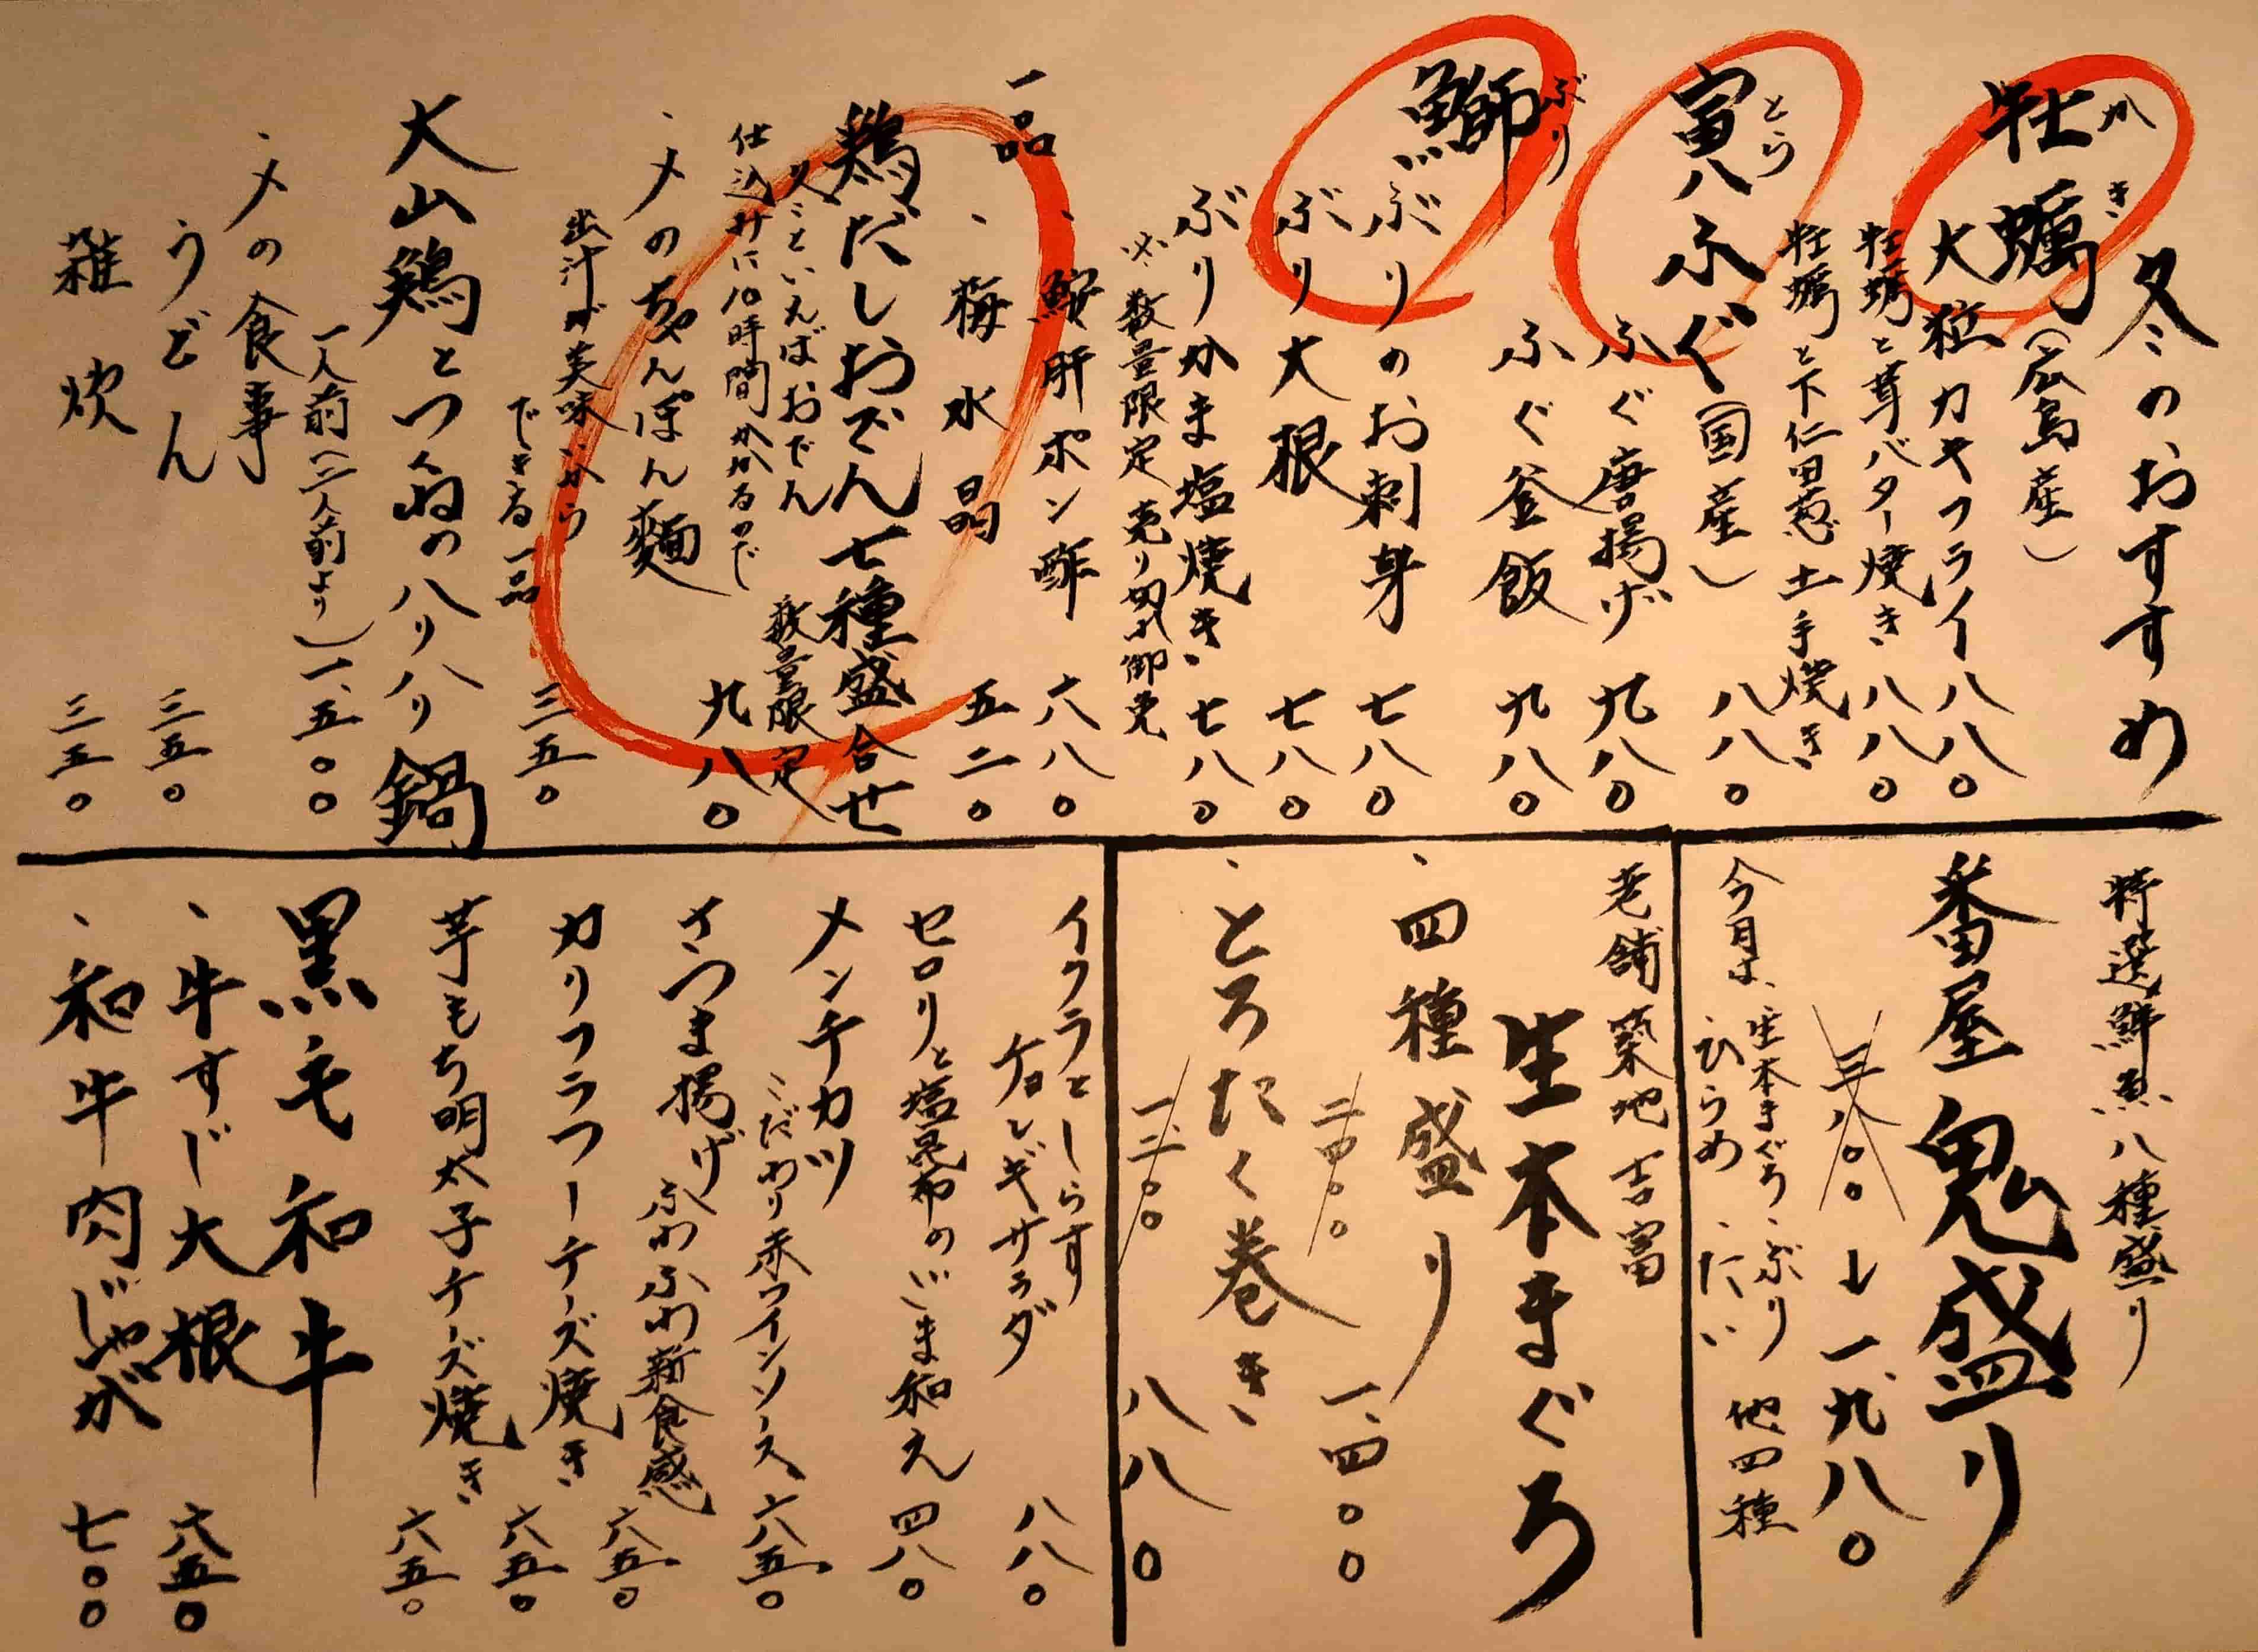 冬のおすすめ
牡蠣(広島産)
かき
大粒カキフライ 八八〇
牡蠣と茸バター焼き 八八〇
牡蠣と下仁田葱土手焼き 八八〇
寅八ふぐ(国産)
とら
ふぐ唐揚げ 九八〇
ふぐ釜飯 九八〇
鰤
ぶり
ぶりのお刺身 七八〇
ぶり大根 七八〇
ぶりかま塩焼き 七八〇
※数量限定 売り切れ御免
一品
、鮟肝ポン酢 六八〇
、梅水晶 五二〇
鶏だしおでん七種盛合せ
冬といえばおでん 数量限定
仕込みに10時間かかるので 九八〇
、〆のちゃんぽん麺
出汁が美味いから
できる一品 三五〇
大山鶏とつくねのハリハリ鍋
一人前(二人前より) 一、五〇〇
、〆の食事
うどん 三五〇
雑炊 三五〇
特選鮮魚八種盛り
番屋鬼盛り
三、八〇〇 → 一、九八〇
今月は、生本まぐろ、ぶり
、ひらめ、たい 他四種
老舗築地吉富
生本まぐろ
、四種盛り
二、四〇〇 一、四〇〇
、とろたく巻き
一、二〇〇 八八〇
イクラとしらす
チョレギサラダ 八八〇
セロリと塩昆布のごま和え 四八〇
メンチカツ
こだわり赤ワインソース 六五〇
さつま揚げ ふわふわ新食感 六五〇
カリフラワーチーズ焼き 六五〇
芋もち明太子チーズ焼き 六五〇
黒毛和牛
、牛すじ大根 六五〇
、和牛肉じゃが 七〇〇